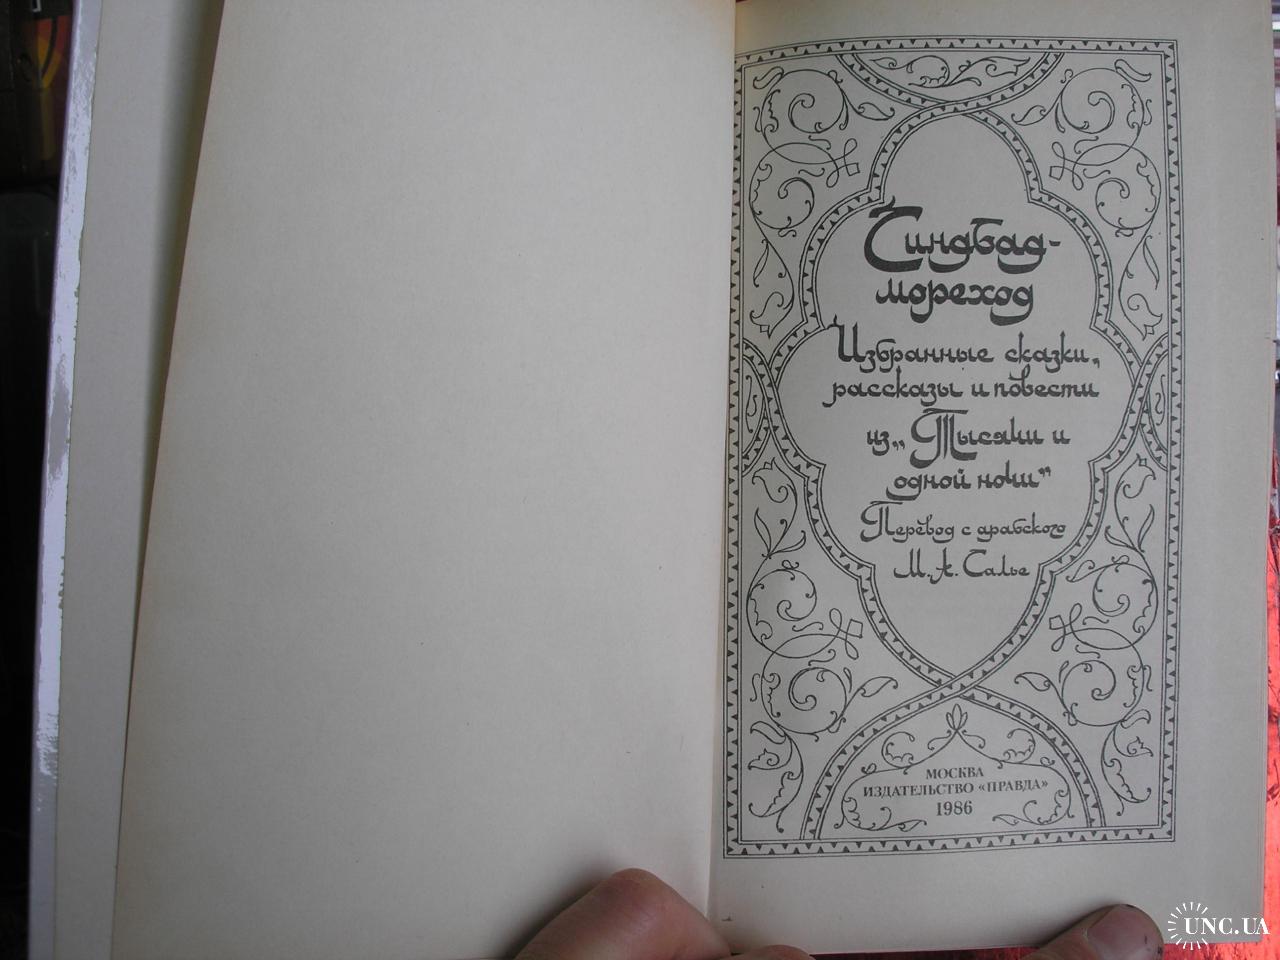 Синдбад-
мореход
Избранные сказки,
рассказы и повести
из „Тысячи и
одной ночи“
Перевод с арабского
М. А. Салье
МОСКВА
ИЗДАТЕЛЬСТВО «ПРАВДА»
1986
UNC.UA